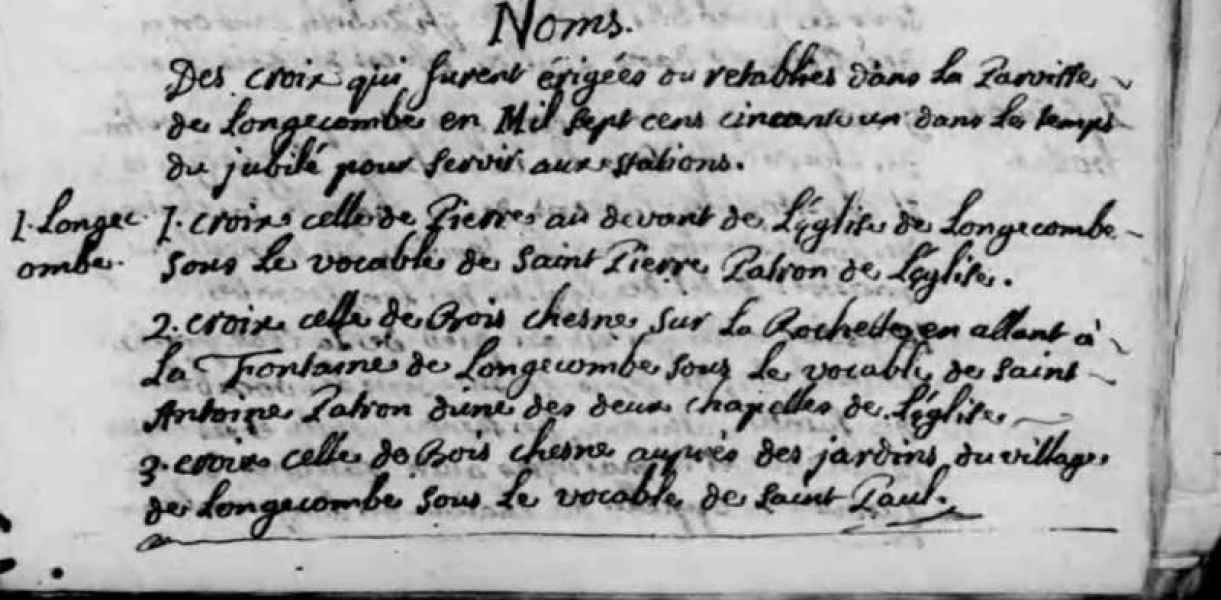 Noms.
Des croix qui furent érigées ou retablies dans la Parroisse
de Longecombe en Mil sept cens cincante un dans le temps
du jubilé pour servir aux stations.
1. Longec
ombe.
1. croix celle de Pierre au devant de L'église de Longecombe
sous le vocable de saint Pierre Patron de L'église.
2. croix celle de Bois chesne sur la Rochette en allant à
La Fontaine de Longecombe sous le vocable de saint
Antoine Patron d'une des deux chapelles de L'église
3. croix celle de Bois chesne auprès des jardins du village
de Longecombe sous le vocable de saint Paul.